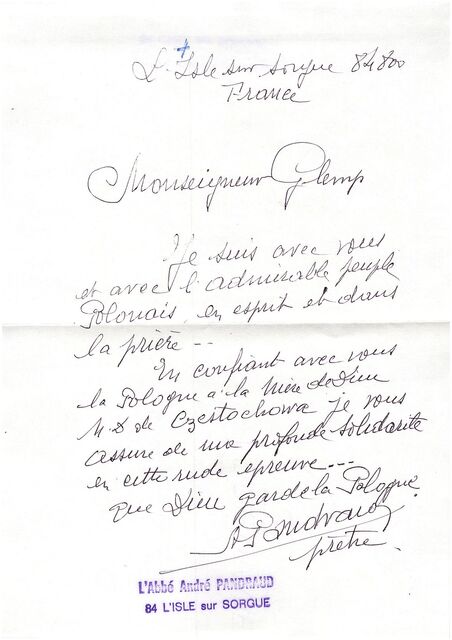 L'Isle sur Sorgue 84800
France
Monseigneur Glemp
Je suis avec vous
et avec l'admirable peuple
Polonais, en esprit et dans
la prière --
En confiant avec vous
la Pologne à la Mère de Dieu
N.D de Czestochowa je vous
assure de ma profonde solidarité
en cette rude épreuve ---
que Dieu garde la Pologne
A Pandraud
prêtre.
L'Abbé André PANDRAUD
84 L'ISLE sur SORGUE